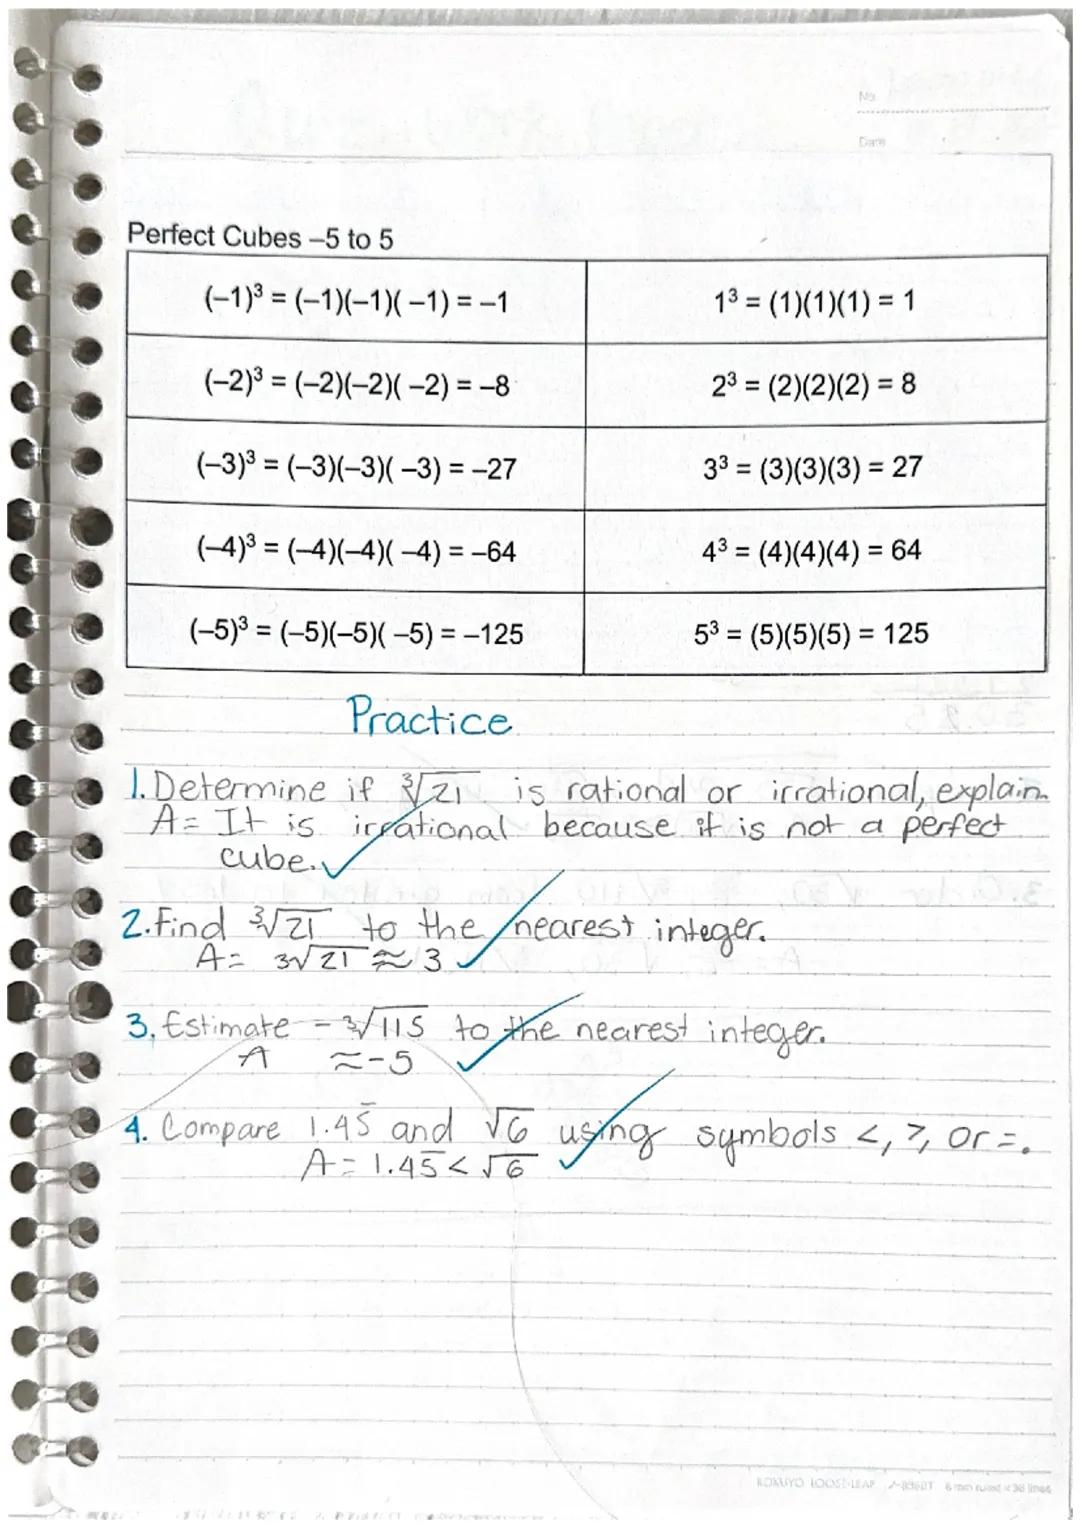 No.
Date
Perfect Cubes –5 to 5
(–1)³ = (–1)(–1)( –1) = –1
1³ = (1)(1)(1) = 1
(–2)³ = (–2)(–2)( –2) = –8
2³ = (2)(2)(2) = 8
(–3)³ = (–3)(–3)( –3) = –27
3³ = (3)(3)(3) = 27
(–4)³ = (–4)(–4)( –4) = –64
4³ = (4)(4)(4) = 64
(–5)³ = (–5)(–5)( –5) = –125
5³ = (5)(5)(5) = 125
Practice
1. Determine if ∛21 is rational or irrational, explain.
A= It is irrational because it is not a perfect
cube.
2. Find ∛21 to the nearest integer.
A= ∛21 ≈ 3
3. Estimate - ∛115 to the nearest integer.
A ≈ -5
4. Compare 1.45̅ and √6 using symbols <, >, or =.
A= 1.45̅ < √6
KOKUYO LOOSE-LEAF 6 mm ruled × 36 lines